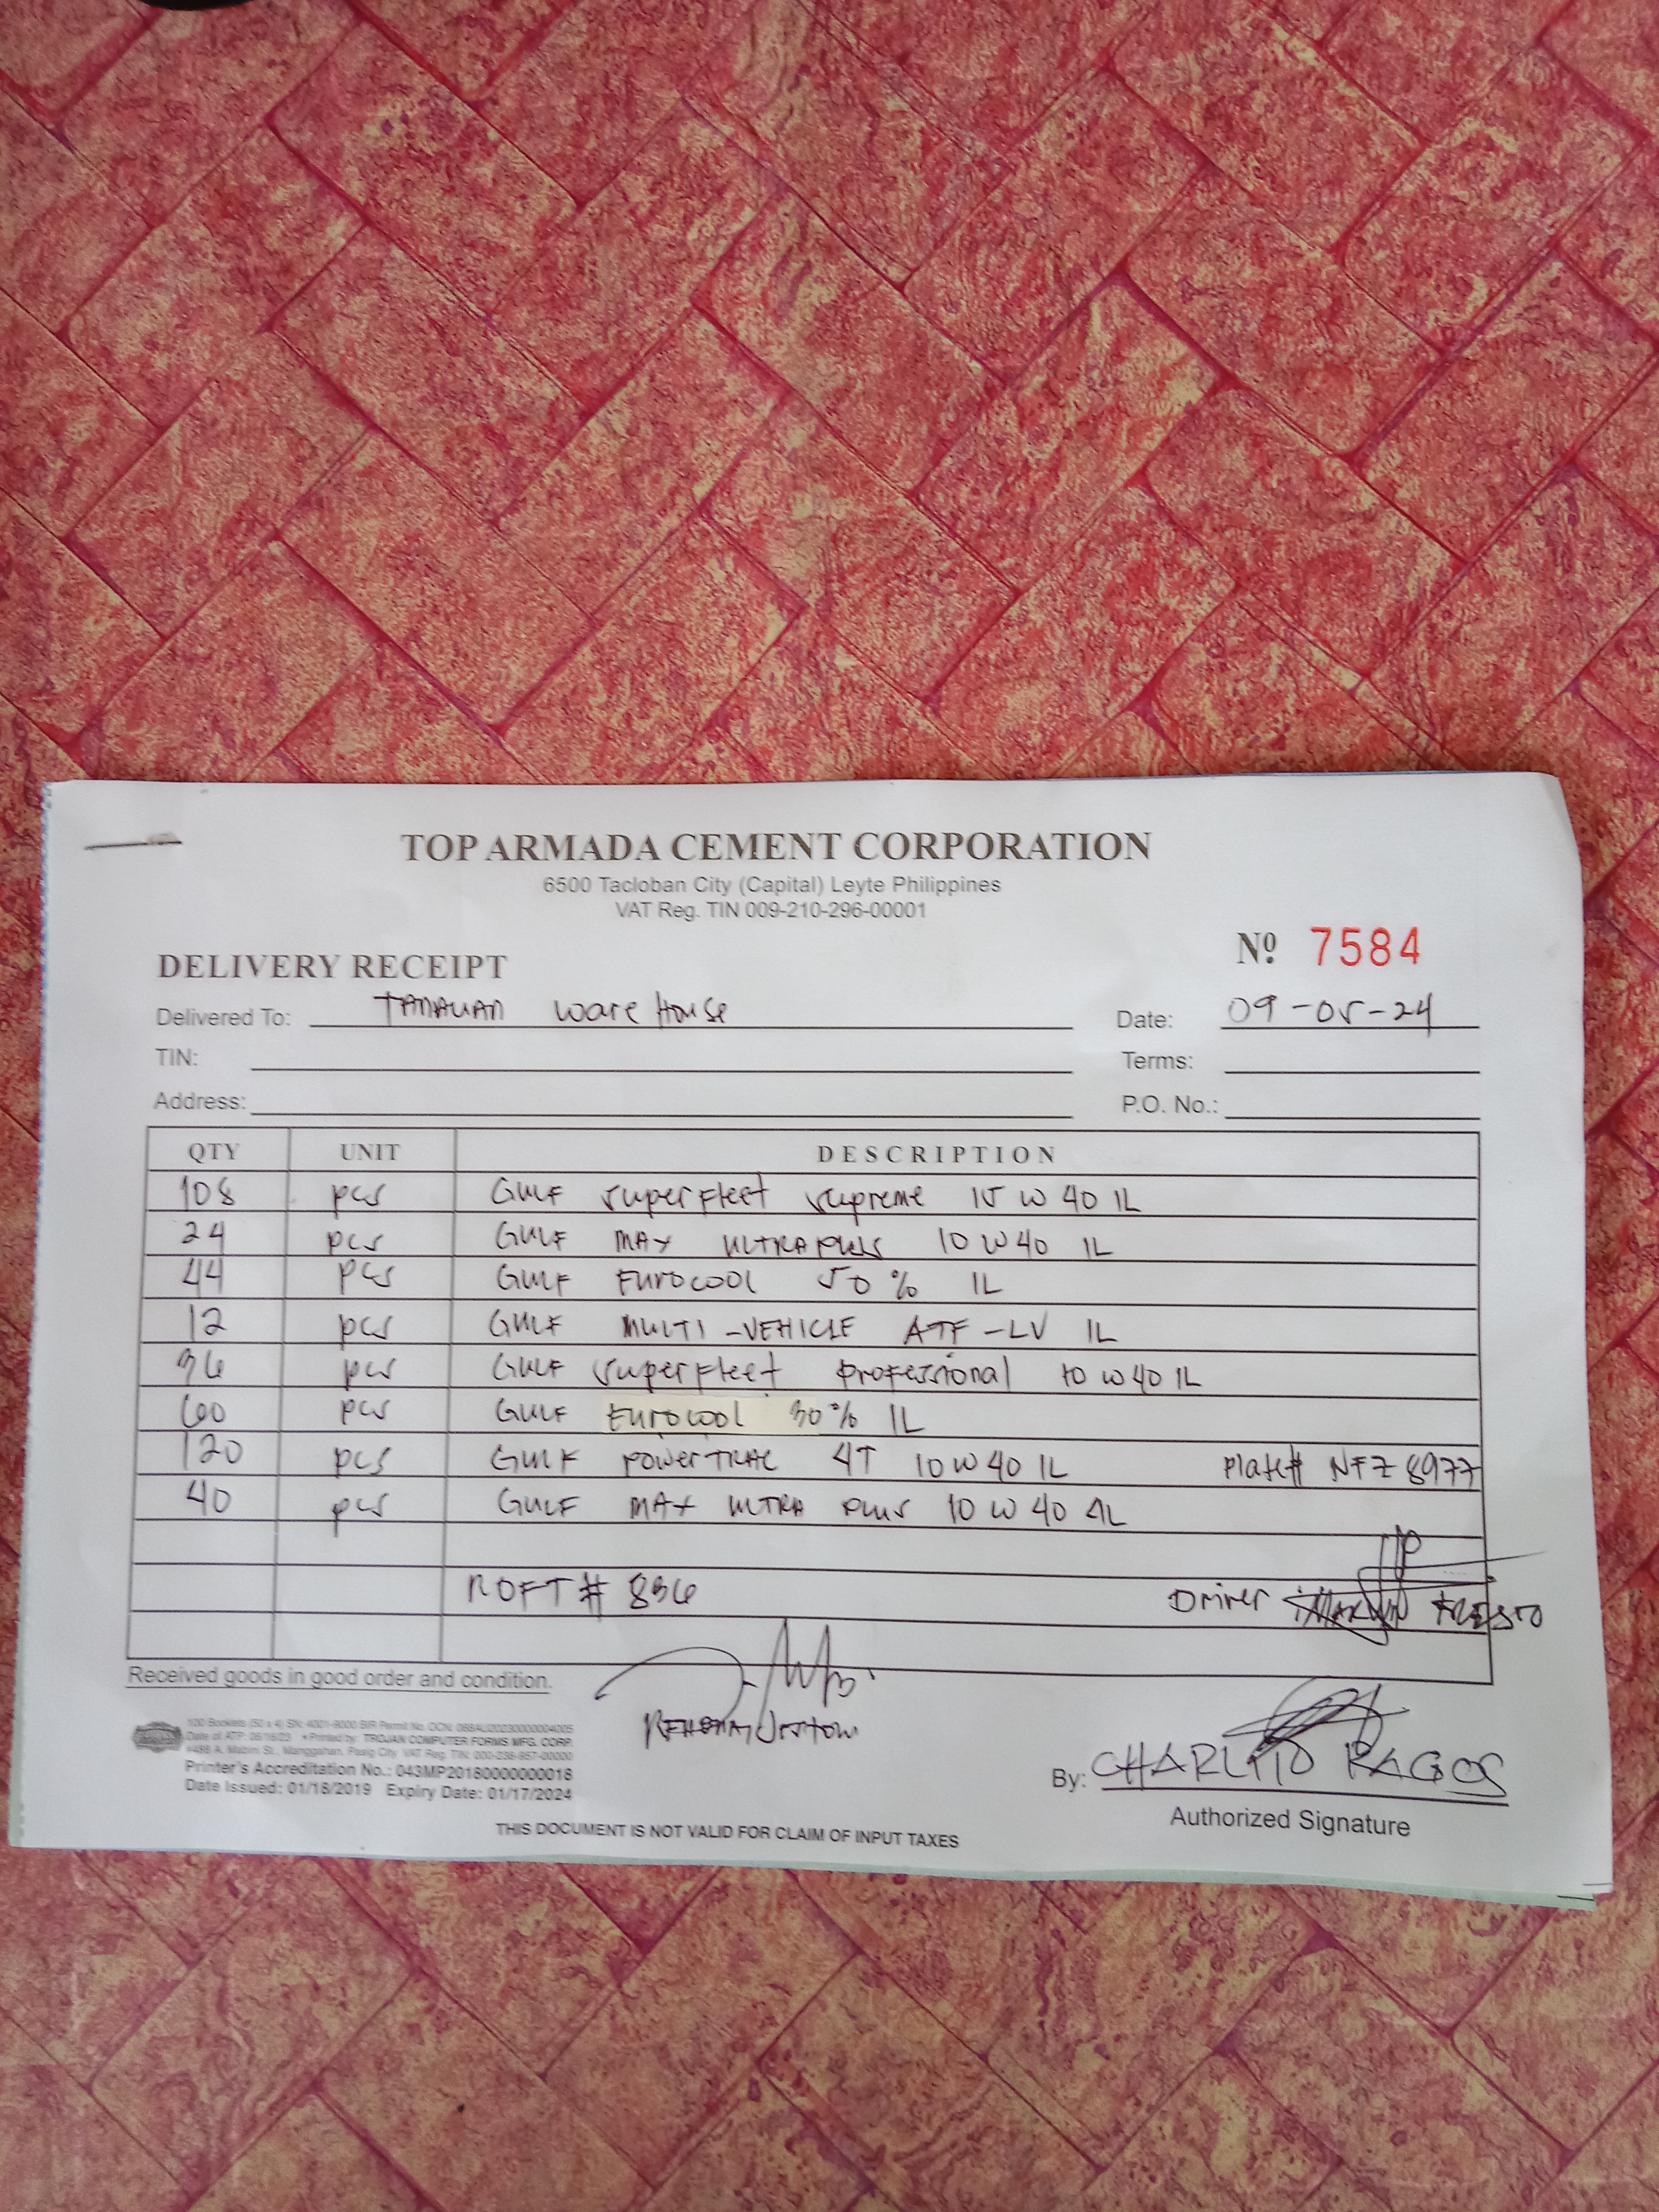 TOP ARMADA CEMENT CORPORATION
6500 Tacloban City (Capital) Leyte Philippines
VAT Reg. TIN 009-210-296-00001
Nº 7584
DELIVERY RECEIPT
Delivered To: TANAUAN Ware House Date: 09-05-24
TIN: Terms:
Address: P.O. No.:
QTY UNIT DESCRIPTION
108 pcs GULF Superfleet Supreme 15W40 1L
24 pcs GULF MAX ULTRA PLUS 10W40 1L
44 pcs GULF Eurocool 50% 1L
12 pcs GULF MULTI-VEHICLE ATF-LV 1L
36 pcs GULF Superfleet Professional 10W40 1L
60 pcs GULF Eurocool 30% 1L
120 pcs GULF POWERTRAC 4T 10W40 1L Plate# NFZ 8977
40 pcs GULF MAX ULTRA PLUS 10W40 4L
ROFT# 836 Driver
Received goods in good order and condition.
100 Booklets (50 x 4) SN: 4001-9000 BIR Permit No. OCN:
Date of ATP: 06/16/23 • Printed by: TROJAN COMPUTER FORMS MFG. CORP.
#486 A. Mabini St., Manggahan, Pasig City VAT Reg. TIN:
Printer's Accreditation No.: 043MP20180000000018
Date Issued: 01/18/2019 Expiry Date: 01/17/2024
By: CHARLITO RAGOS
Authorized Signature
THIS DOCUMENT IS NOT VALID FOR CLAIM OF INPUT TAXES